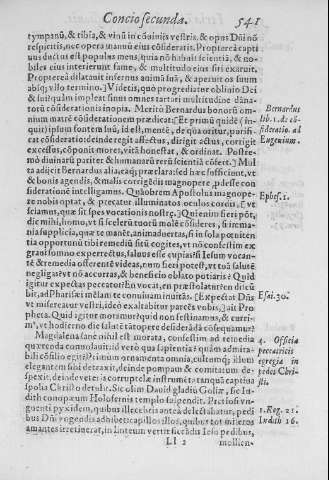 Concio secunda. 541
tympanū, & tibia, & vinū in cōuiuijs vestris, & opus Dñi nō
respicitis, nec opera manuū eius cōsideratis. Propterea capti
uus ductus est populus meus, quia nō habuit scientiā, & no-
biles eius interierunt fame, & multitudo eius siti exaruit.
Propterea dilatauit infernus animā suā, & aperuit os suum
absq; vllo termino.] Videtis, quo progrediatur obliuio Dei
& huiq́; impleat sinus omnes tartari multitudine dāna-
torū cōsiderationis inopia. Meritò Bernardus bonorū om-
nium matrē cōsiderationem prædicat:[Et primū quidē (in-
quit) ipsum fontem suū, id est, mentē, de qua oritur, purifi-
cat cōsideratio: deinde regit affectus, dirigit actus, corrigit
excessus, cōponit mores, vitā honestat, & ordinat. Postre-
mò diuinarū pariter & humanarū rerū sciētiā cōfert.] Mul
ta adijcit Bernardus alia, eaq́; præclara: sed hæc sufficiunt, vt
& bonis agendis, & malis corrigēdis magnopere, pdesse con
siderationē intelligamus. Quāobrem Apostolus magnope-
re nobis optat, & precatur illuminatos oculos cordis: [vt
sciamus, quæ sit spes vocationis nostræ.] Qui enim fieri pōt,
dic mihi, homo, vt si scelerū tuorū molē cōsideres, si imma-
nia supplicia, quæ te manēt, animaduertas, si in sola pœniten
tia opportunū tibi remediū sitū cogites, vt nō confestim ex
graui somno experrectus, saluus esse cupias? si Iesum vocan-
tē & remedia offerentē videas, num fieri potest, vt tuā salutē
negligas? vt nō accurras, & beneficio oblato potiaris? Quid
igitur expectas peccator? En vocat, en præstolatur: en dicū
bit, ad Pharisæi mēsam te conuiuam inuitās. [Expectat Dñs
vt misereatur vestri, ideò exaltabitur parcēs vobis,] ait Pro
pheta. Quid igitur moramur? quid non festinamus, & curri-
m⁹, vt hodierno die salutē tatopere desideratā cōsequamur?
Magdalena sanè nihil est morata, confestim ad remedia
quærenda conuolauit: id verò qua sapientia? quàm admira-
bili cōsilio egit? Primum ornamenta omnia, cultumq́; illum
elegantem sibi detraxit, deinde pompam & comitatum de-
spexit, dein
spolia Christo detulit. Sic olim Dauid gladiū Goliæ, sic Iu-
dith conopæum Holofernis templo suspendit. Pretiosi vn-
guenti pyxidem, quibus illecebris anteà delectabatur, pedi
bus Dñi vngendis adhibet: capillos illos, quibus tot homines
amantes irretierat, in linteum vertit siccādis Iesu pedibus,
Ll 2 mollien-
Bernardus
lib. 1. de cō-
sideratio. ad
Eugenium.
Ephes. 1.
Esai. 30.
4. Officia
peccatricis
egregia in
pedes Chri-
sti.
1. Reg. 21.
Iudith 16.